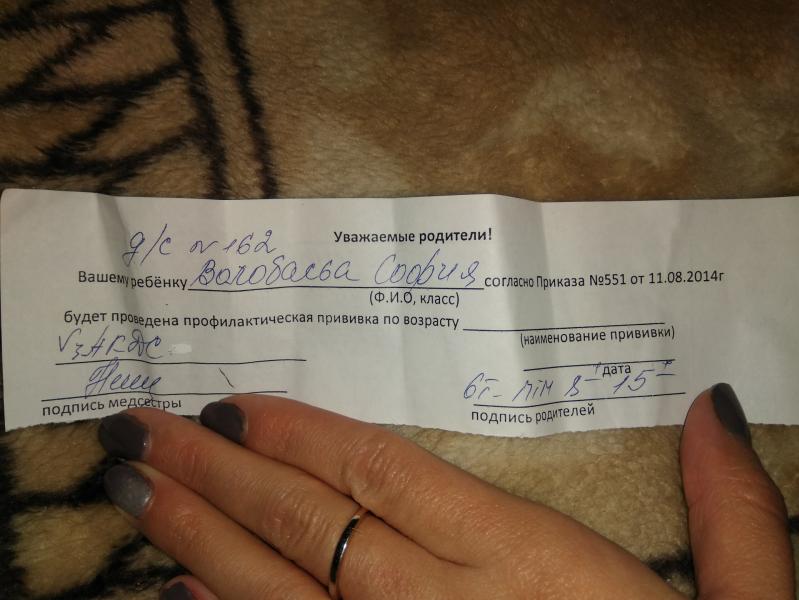 д/с № 162
Уважаемые родители!
Вашему ребёнку София согласно Приказа №551 от 11.08.2014г
(Ф.И.О, класс)
будет проведена профилактическая прививка по возрасту
(наименование прививки)
V₃ АКДС
дата
подпись медсестры
подпись родителей